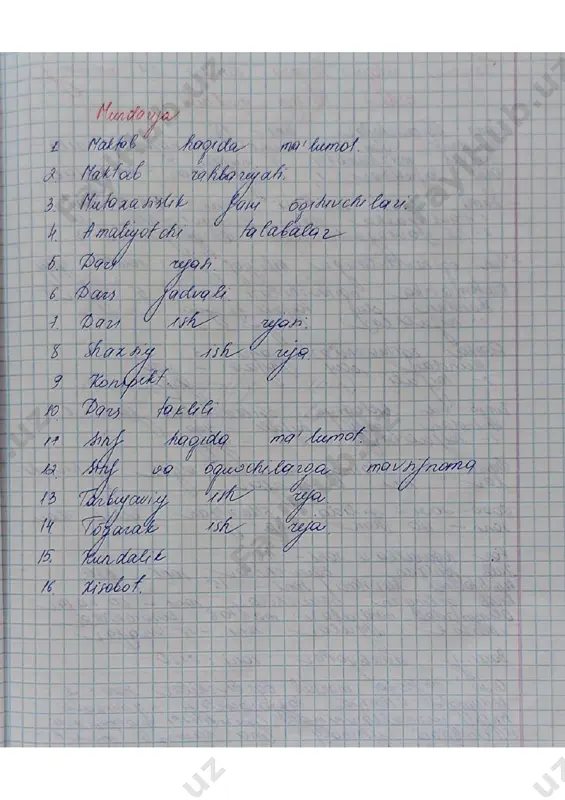 Mundarija
1. Maktab haqida ma'lumot.
2. Maktab rahbariyati.
3. Mutaxasislik fani o'qituvchilari.
4. Amaliyotchi talabalar
5. Dars rejasi.
6. Dars jadvali.
7. Dars ish rejasi.
8 Shaxsiy ish reja
9. Konspekt.
10. Dars taklili
11 Sinf haqida ma'lumot.
12. Sinf va o'quvchilarga tavsifnoma
13 Tarbiyaviy ish reja
14 To'garak ish reja.
15. Kundalik
16. Xisobot.
FaylHub.uz